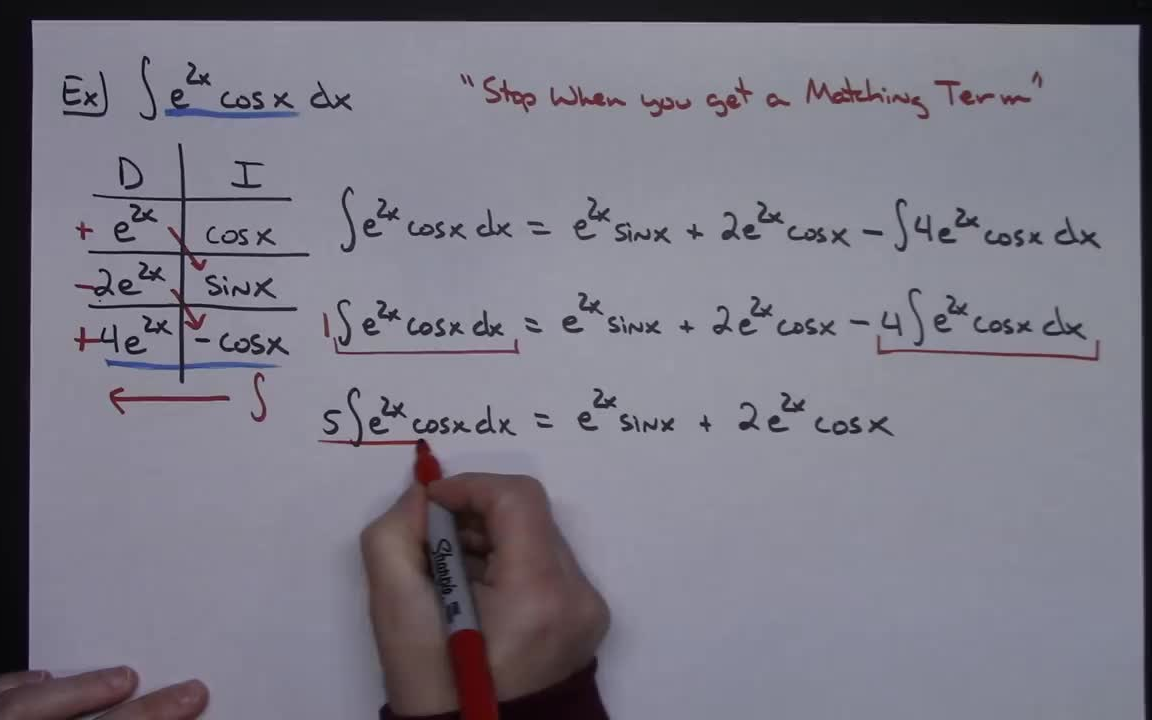 Ex) ∫ e^{2x} cos x dx
"Stop When you get a Matching Term"
D I
+ e^{2x} cos x
- 2e^{2x} sin x
+ 4e^{2x} - cos x
← ∫
∫ e^{2x} cos x dx = e^{2x} sin x + 2e^{2x} cos x - ∫ 4e^{2x} cos x dx
1 ∫ e^{2x} cos x dx = e^{2x} sin x + 2e^{2x} cos x - 4 ∫ e^{2x} cos x dx
5 ∫ e^{2x} cos x dx = e^{2x} sin x + 2e^{2x} cos x
Sharpie